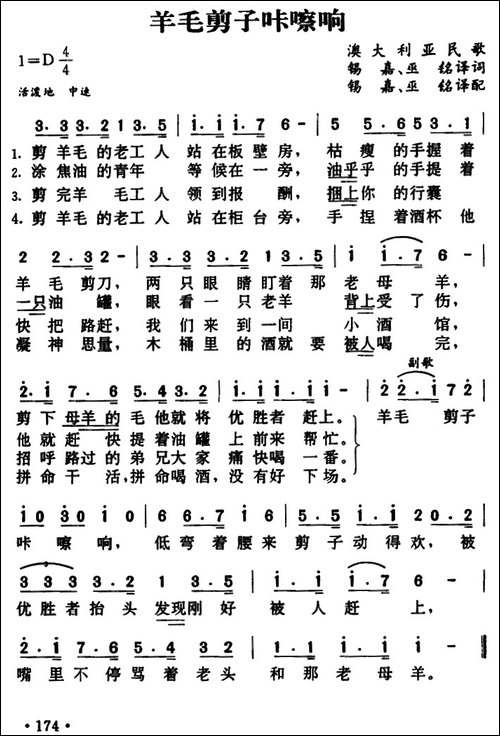 羊毛剪子咔嚓响
1=D 4/4
澳大利亚民歌
锡嘉、巫铭译词
活泼地 中速
锡嘉、巫铭译配
3.3 3.3 2 1 3.5 | i.i i.7 6 - | 5 5.6 5 3.1 |
1. 剪羊毛的老工人 站在板壁房, 枯瘦的手握着
2. 涂焦油的青年 等候在一旁, 油乎乎的手提着
3. 剪完羊 毛工人 领到报酬, 捆上你的行囊
4. 剪羊毛的老工人 站在柜台旁, 手捏着酒杯他
2 2.3 2 - | 3.3 3.2 1 3.5 | i.i i.7 6 |
羊毛剪刀, 两只眼睛盯着那老母羊,
一只油罐, 眼看一只老羊 背上受了伤,
快把路赶, 我们来到一间 小酒馆,
凝神思量, 木桶里的酒就要被人喝完,
副歌
2.i 7.6 5.4 3.2 | i i i i i i - | 2 2.i 7 2 |
剪下母羊的毛他就将 优胜者赶上。 羊毛 剪子
他就赶 快提着油罐 上前来帮忙。
招呼路过的弟兄大家 痛快喝一番。
拼命干 活,拼命喝酒,没有好下场。
i 0 3 0 i 0 | 6 6.7 i 6 | 5.5 5.i 2 0.2 |
咔嚓响, 低弯着腰来剪子动得欢, 被
3 3 3 3.2 | 1 3.5 | i.i i.7 6 |
优胜者抬头发现刚好 被人赶上,
2.i 7.6 5.4 3 2 | i i.i i - ‖
嘴里不停骂着老头 和那老母羊。
·174·